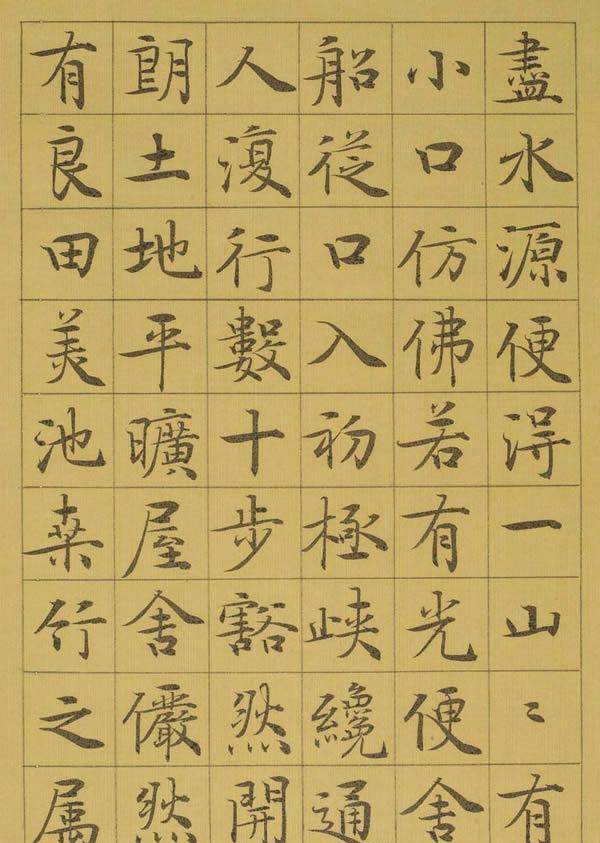 盡水源便淂一山〻有
小口仿佛若有光便舍
船從口入初極峽纔通
人復行數十步豁然開
朗土地平曠屋舍儼然
有良田美池桑竹之属